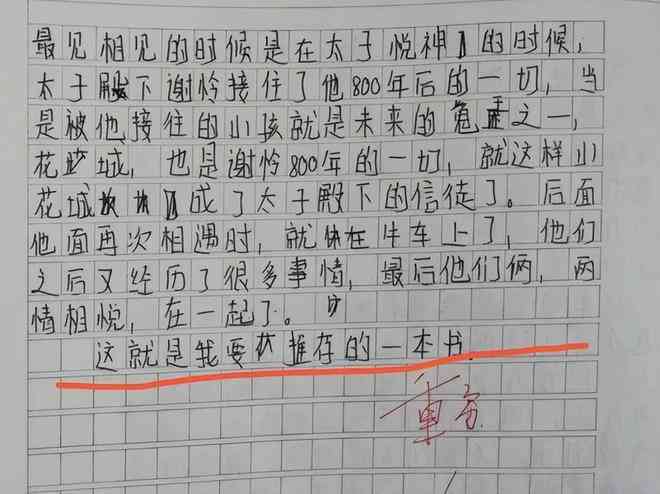 最见相见的时候是在太子悦神的时候，
太子殿下谢怜接住了他800年后的一切，当
是被他接往的小孩就是未来的鬼王之一，
花城，也是谢怜800年的一切，就这样小
花城成了太子殿下的信徒了。后面
他面再次相遇时，就休在牛车上了，他们
之后又经历了很多事情，最后他们俩，两
情相悦，在一起了。
这就是我要推存的一本书.
重写